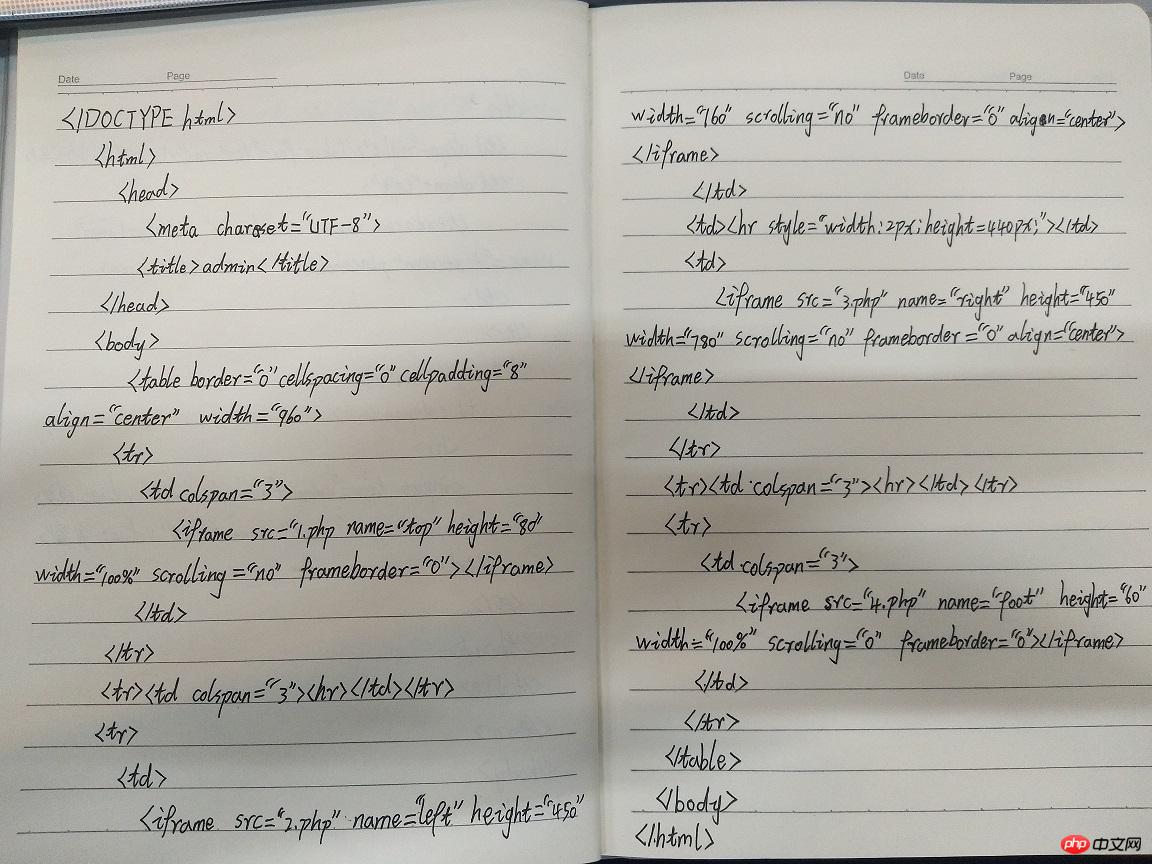 Date Page
<!DOCTYPE html>
<html>
<head>
<meta charset="UTF-8">
<title>admin</title>
</head>
<body>
<table border="0" cellspacing="0" cellpadding="8"
align="center" width="960">
<tr>
<td colspan="3">
<iframe src="1.php name="top" height="80"
width="100%" scrolling="no" frameborder="0"></iframe>
</td>
</tr>
<tr><td colspan="3"><hr></td></tr>
<tr>
<td>
<iframe src="2.php" name="left" height="450"
Date Page
width="160" scrolling="no" frameborder="0" align="center">
</iframe>
</td>
<td><hr style="width:2px;height=440px;"></td>
<td>
<iframe src="3.php" name="right" height="450"
width="780" scrolling="no" frameborder="0" align="center">
</iframe>
</td>
</tr>
<tr><td colspan="3"><hr></td></tr>
<tr>
<td colspan="3">
<iframe src="4.php" name="foot" height="60"
width="100%" scrolling="0" frameborder="0"></iframe>
</td>
</tr>
</table>
</body>
</html>
php 中文网